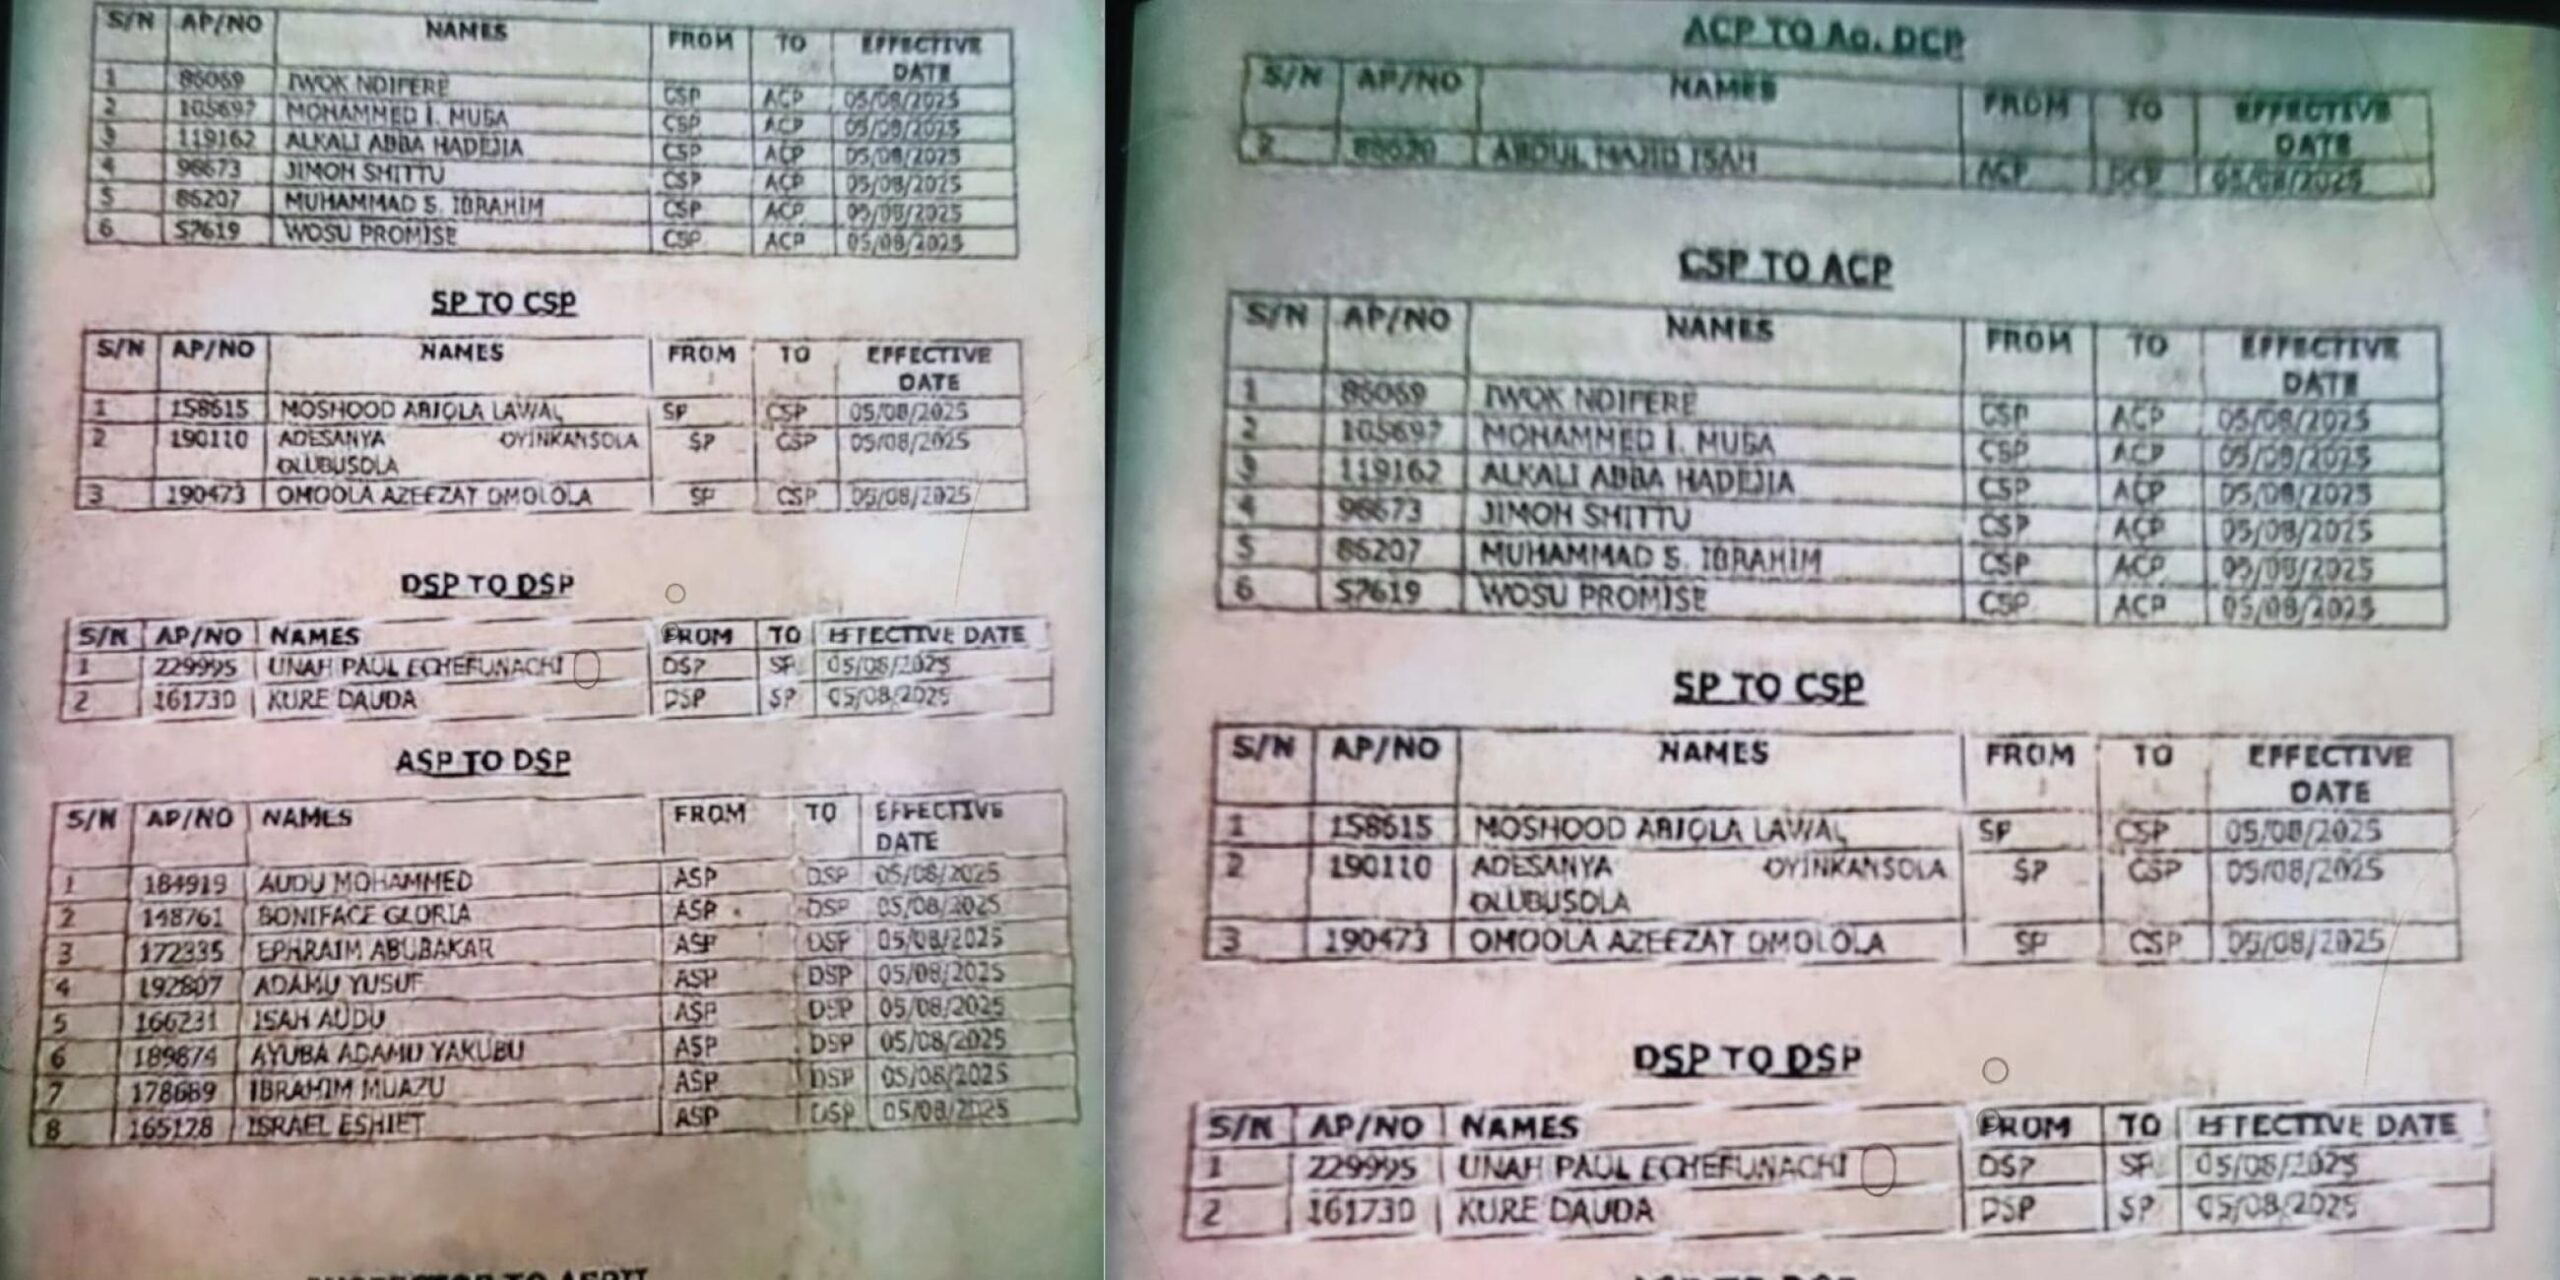 S/N AP/NO NAMES FROM TO EFFECTIVE DATE
1 86069 IWOK NDIPERE CSP ACP 05/08/2025
2 105697 MOHAMMED I. MUSA CSP ACP 05/08/2025
3 119162 ALKALI ABBA HADEJIA CSP ACP 05/08/2025
4 96673 JIMOH SHITTU CSP ACP 05/08/2025
5 86207 MUHAMMAD S. IBRAHIM CSP ACP 05/08/2025
6 57619 WOSU PROMISE CSP ACP 05/08/2025
SP TO CSP
S/N AP/NO NAMES FROM TO EFFECTIVE DATE
1 158615 MOSHOOD ABIOLA LAWAL SP CSP 05/08/2025
2 190110 ADESANYA OYINKANSOLA SP CSP 05/08/2025
OLUBUSOLA
3 190473 OMOOLA AZEEZAT OMOLOLA SP CSP 05/08/2025
DSP TO DSP
S/N AP/NO NAMES FROM TO EFFECTIVE DATE
1 229995 UNAH PAUL ECHEFUNACHI DSP SP 05/08/2025
2 161730 KURE DAUDA DSP SP 05/08/2025
ASP TO DSP
S/N AP/NO NAMES FROM TO EFFECTIVE DATE
1 184919 AUDU MOHAMMED ASP DSP 05/08/2025
2 148761 BONIFACE GLORIA ASP DSP 05/08/2025
3 172335 EPHRAIM ABUBAKAR ASP DSP 05/08/2025
4 192807 ADAMU YUSUF ASP DSP 05/08/2025
5 166231 ISAH AUDU ASP DSP 05/08/2025
6 189874 AYUBA ADAMU YAKUBU ASP DSP 05/08/2025
7 178689 IBRAHIM MUAZU ASP DSP 05/08/2025
8 165128 ISRAEL ESHIET ASP DSP 05/08/2025
ACP TO Ag. DCP
S/N AP/NO NAMES FROM TO EFFECTIVE DATE
2 ABDUL MAJID ISAH ACP DCP 05/08/2025
CSP TO ACP
S/N AP/NO NAMES FROM TO EFFECTIVE DATE
1 86069 IWOK NDIPERE CSP ACP 05/08/2025
2 105697 MOHAMMED I. MUSA CSP ACP 05/08/2025
3 119162 ALKALI ABBA HADEJIA CSP ACP 05/08/2025
4 96673 JIMOH SHITTU CSP ACP 05/08/2025
5 86207 MUHAMMAD S. IBRAHIM CSP ACP 05/08/2025
6 57619 WOSU PROMISE CSP ACP 05/08/2025
SP TO CSP
S/N AP/NO NAMES FROM TO EFFECTIVE DATE
1 158615 MOSHOOD ABIOLA LAWAL SP CSP 05/08/2025
2 190110 ADESANYA OYINKANSOLA SP CSP 05/08/2025
OLUBUSOLA
3 190473 OMOOLA AZEEZAT OMOLOLA SP CSP 05/08/2025
DSP TO DSP
S/N AP/NO NAMES FROM TO EFFECTIVE DATE
1 229995 UNAH PAUL ECHEFUNACHI DSP SP 05/08/2025
2 161730 KURE DAUDA DSP SP 05/08/2025